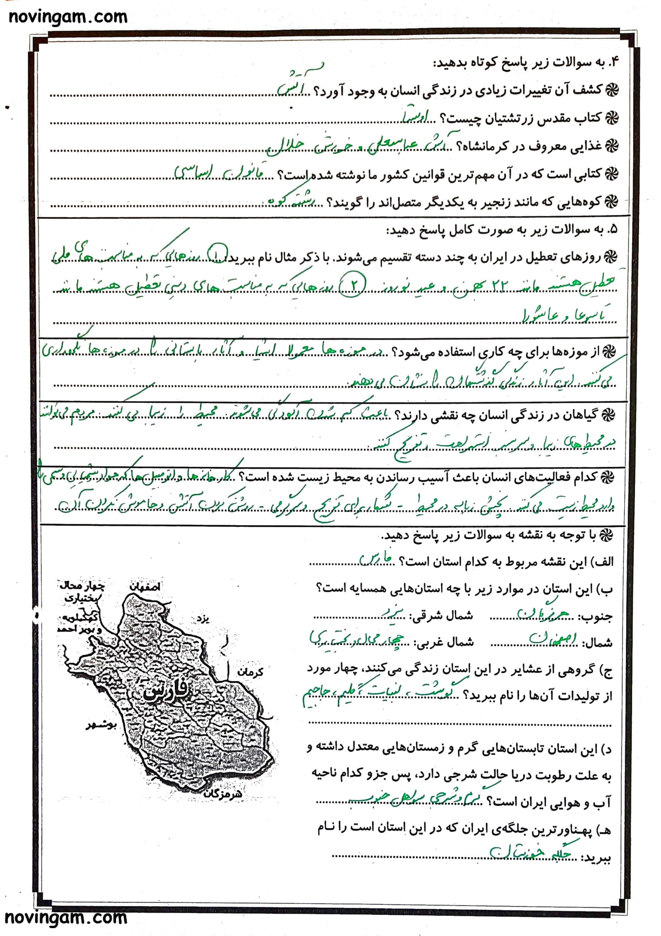 novingam.com
۴. به سوالات زیر پاسخ کوتاه بدهید:
کشف آن تغییرات زیادی در زندگی انسان به وجود آورد؟ آتش
کتاب مقدس زرتشتیان چیست؟ اوستا
غذایی معروف در کرمانشاه؟ آش عباسعلی و خورش خلال
کتابی است که در آن مهم‌ترین قوانین کشور ما نوشته شده‌است؟ قانون اساسی
کوه‌هایی که مانند زنجیر به یکدیگر متصل‌اند را گویند؟ رشته کوه
۵. به سوالات زیر به صورت کامل پاسخ دهید:
روزهای تعطیل در ایران به چند دسته تقسیم می‌شوند. با ذکر مثال نام ببرید. ۱ روزهایی که به مناسبت های ملی
تعطیل هستند مانند ۲۲ بهمن و عید نوروز ۲ روزهایی که به مناسبت های دینی تعطیل هستند مانند
تاسوعا و عاشورا
از موزه‌ها برای چه کاری استفاده می‌شود؟ در موزه ها معمولا اشیا و آثار باستانی را در موزه ها نگهداری
می کنند. این آثار زندگی گذشتگان را نشان می دهند.
گیاهان در زندگی انسان چه نقشی دارند؟ باعث کم شدن آلودگی می شوند. محیط را زیبا می کنند. مردم می توانند
در محیط های زیبا و سرسبز استراحت و تفریح کنند.
کدام فعالیت‌های انسان باعث آسیب رساندن به محیط زیست شده است؟ کارخانه ها و اتومبیل ها که هوا
وارد محیط زیست می کند پخش زباله در محیط - شکار برای تفریح و سرگرمی - روشن کردن آتش و خاموش نکردن آن
با توجه به نقشه به سوالات زیر پاسخ دهید.
الف) این نقشه مربوط به کدام استان است؟ فارس
ب) این استان در موارد زیر با چه استان‌هایی همسایه است؟
جنوب: هرمزگان شمال شرقی: یزد
شمال: اصفهان شمال غربی: چهارمحال بختیاری
ج) گروهی از عشایر در این استان زندگی می‌کنند، چهار مورد
از تولیدات آن‌ها را نام ببرید؟ گوشت، لبنیات، گلیم، جاجیم
د) این استان تابستان‌هایی گرم و زمستان‌هایی معتدل داشته و
به علت رطوبت دریا حالت شرجی دارد، پس جزو کدام ناحیه
آب و هوایی ایران است؟ گرم و شرجی سواحل جنوب
هـ) پهناورترین جلگه‌ی ایران که در این استان است را نام
ببرید: جلگه خوزستان
اصفهان
چهار محال
بختیاری
کهکیلویه
و بویر احمد
یزد
کرمان
فارس
بوشهر
هرمزگان
novingam.com